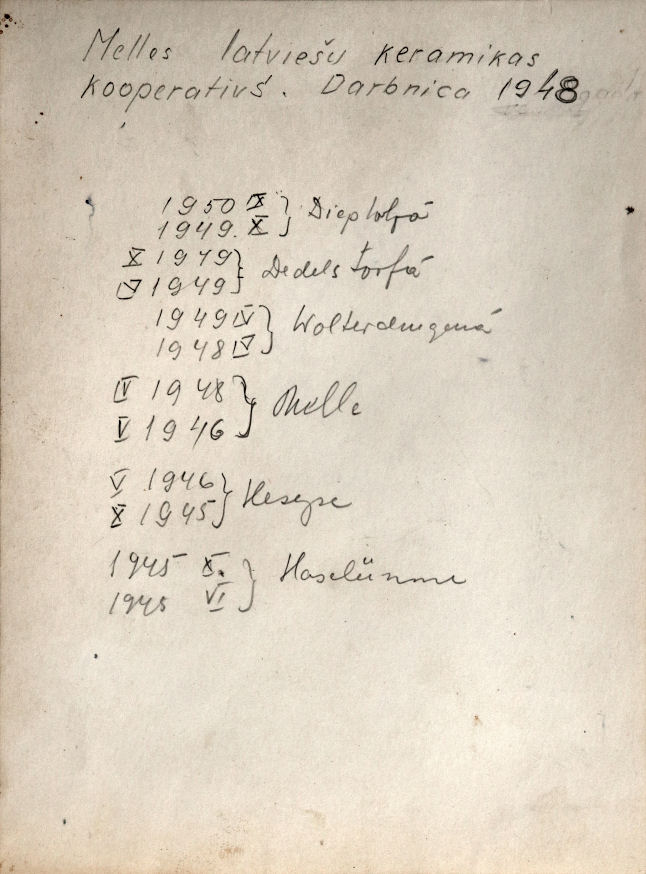 Melles latviešu keramikas
kooperatīvs. Darbnīca 1948
1950 IX } Diepholzā
1949. X
X 1949 } Dedelstorfā
IV 1949
1949 IV } Wolterdingenā
1948 IV
IV 1948 } Melle
V 1946
V 1946 } Hesepe
X 1945
1945 X. } Haselünne
1945 VI